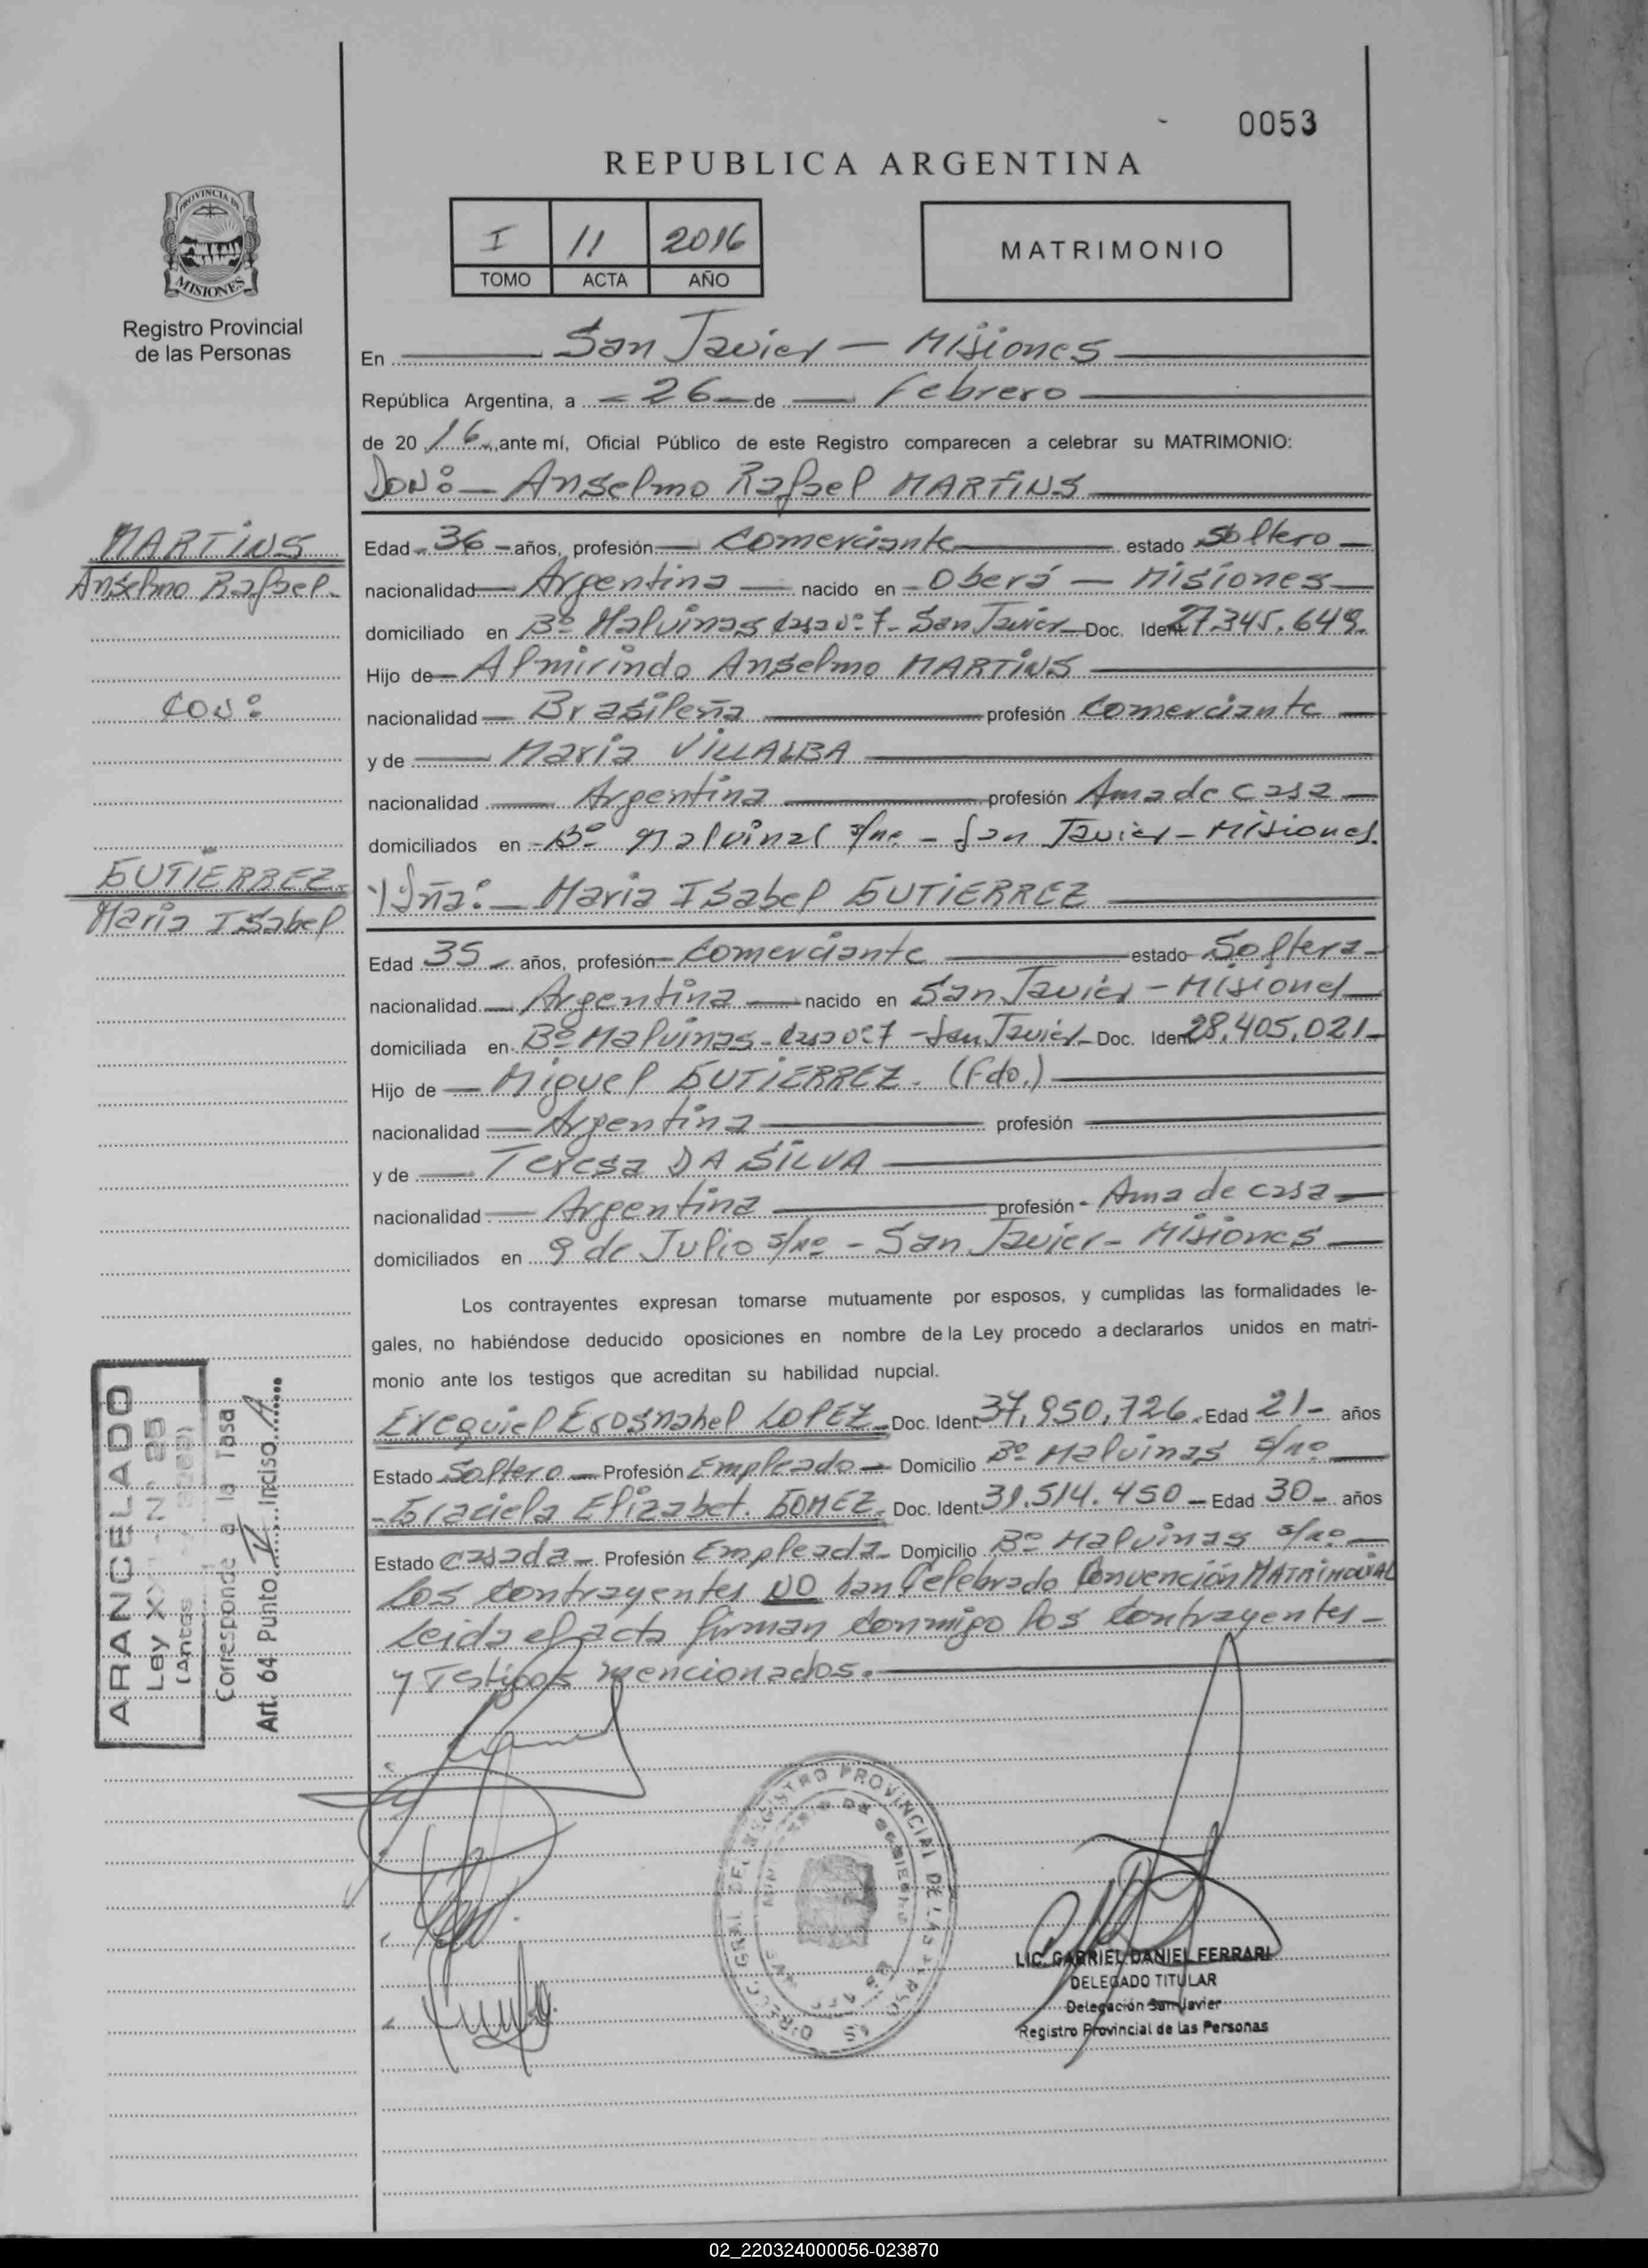 0053
REPUBLICA ARGENTINA
I 11 2016
TOMO ACTA AÑO
MATRIMONIO
PROVINCIA DE
MISIONES
Registro Provincial
de las Personas
En San Javier - Misiones
República Argentina, a 26 de Febrero
de 2016, ante mí, Oficial Público de este Registro comparecen a celebrar su MATRIMONIO:
Don: Anselmo Rafael MARTINS
MARTINS
Anselmo Rafael
CON:
GUTIERREZ
Maria Isabel
Edad 36 años, profesión Comerciante estado Soltero
nacionalidad Argentina nacido en Oberá - Misiones
domiciliado en Bº Malvinas Casa Nº 7 - San Javier Doc. Ident 27.345.649
Hijo de Almirindo Anselmo MARTINS
nacionalidad Brasileña profesión Comerciante
y de Maria VILLALBA
nacionalidad Argentina profesión Ama de casa
domiciliados en Bº Malvinas s/nº - San Javier - Misiones
Y Sña: Maria Isabel GUTIERREZ
Edad 35 años, profesión Comerciante estado Soltera
nacionalidad Argentina nacido en San Javier - Misiones
domiciliada en Bº Malvinas - Casa Nº 7 - San Javier Doc. Ident 28.405.021
Hijo de Miguel GUTIERREZ. (Fdo.)
nacionalidad Argentina profesión
y de Teresa DA SILVA
nacionalidad Argentina profesión Ama de casa
domiciliados en 9 de Julio s/nº - San Javier - Misiones
Los contrayentes expresan tomarse mutuamente por esposos, y cumplidas las formalidades le-
gales, no habiéndose deducido oposiciones en nombre de la Ley procedo a declararlos unidos en matri-
monio ante los testigos que acreditan su habilidad nupcial.
Exequiel LOPEZ Doc. Ident 37.950.726 Edad 21 años
Estado Soltero Profesión Empleado Domicilio Bº Malvinas s/nº
Graciela Elizabet. GOMEZ Doc. Ident 31.514.450 Edad 30 años
Estado Casada Profesión Empleada Domicilio Bº Malvinas s/nº
Los Contrayentes NO han Celebrado Convención MATRIMONIAL
Leida el acta firman conmigo los Contrayentes
y Testigos mencionados.
ARANCELADO
Ley XX - N° 25
(Antes
Corresponde a la Tasa
Art. 64 Punto IV Inciso A
DIRECC. GRAL. DEL REGISTRO PROVINCIAL DE LAS PERSONAS
MINISTERIO DE GOBIERNO
LIC. GABRIEL DANIEL FERRARI
DELEGADO TITULAR
Delegación San Javier
Registro Provincial de las Personas
02_220324000056-023870